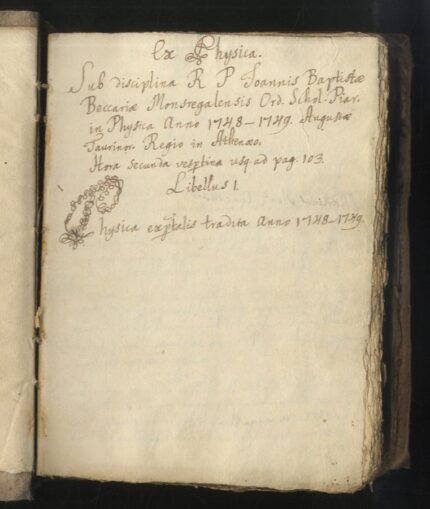 Ex Physica.
Sub disciplina R P Ioannis Baptistæ
Beccariæ Monsregalensis Ord. Schol. Piar.
in Physica Anno 1748-1749. Augustæ
Taurinor. Regio in Athenæo.
Hora secunda vesptina usq. ad pag. 103.
Libellus 1.
Physica exptalis tradita Anno 1748-1749.